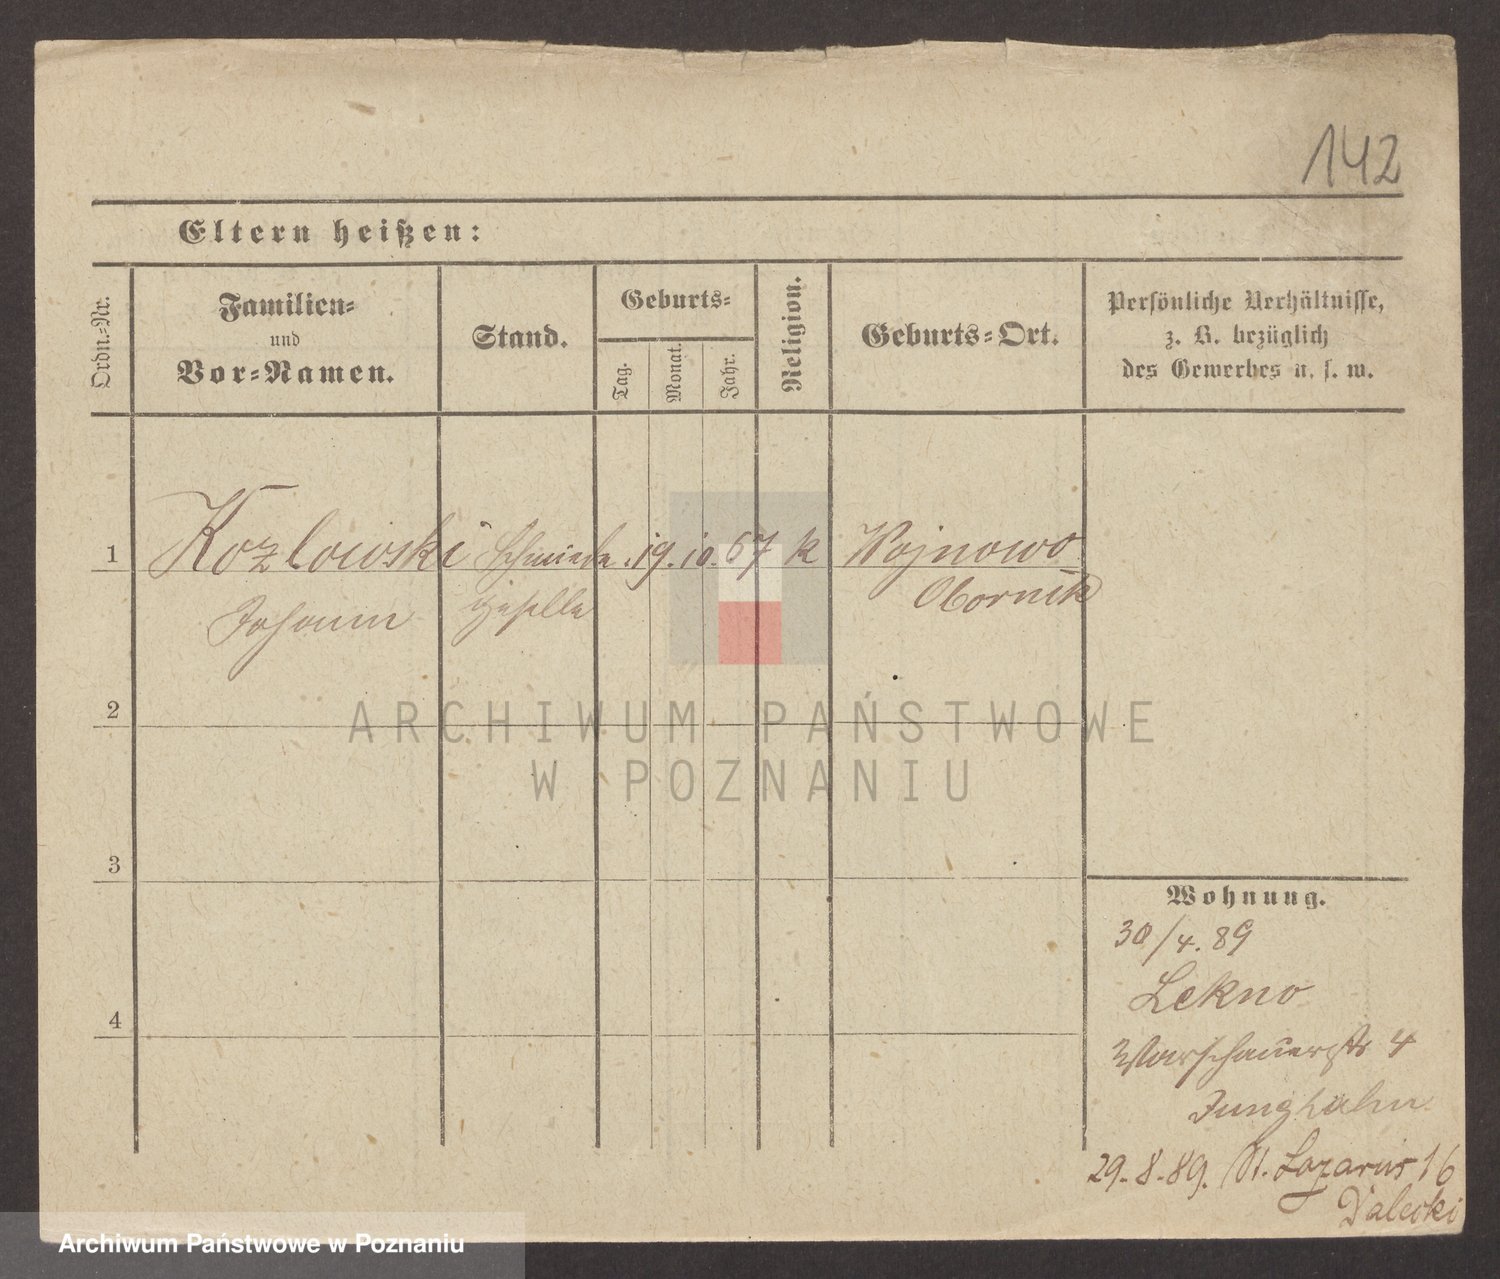 142
Eltern heißen:
Ordn.-Nr.
Familien-
und
Vor-Namen.
Stand.
Geburts-
Tag.
Monat.
Jahr.
Religion.
Geburts-Ort.
Persönliche Verhältnisse,
z. B. bezüglich
des Gewerbes u. s. w.
1 Kozlowski Schmiede 19. 10. 67 k Wojnowo
Johann geselle Obornik
2
3
4
Wohnung.
30/4. 89
Lekno
Warschauerstr 4
Junghahn
29. 8. 89. St. Lazarus 16
Dalecki
ARCHIWUM PAŃSTWOWE
W POZNANIU
Archiwum Państwowe w Poznaniu